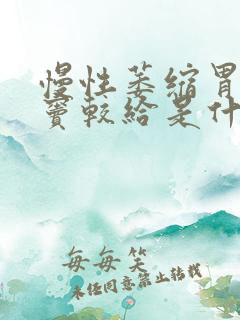 慢性萎缩胃
窦较给是什
每每笑
未经同意禁止转载